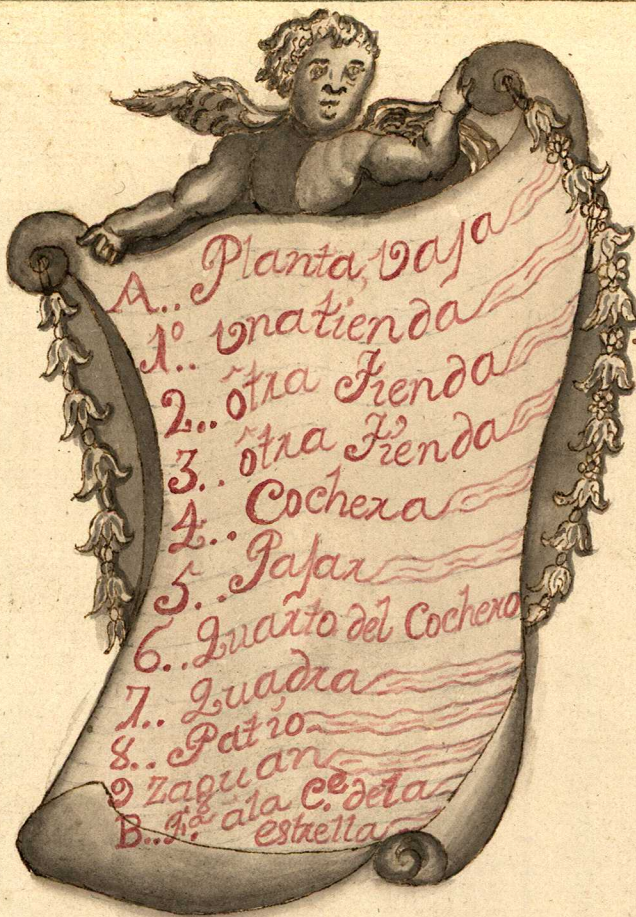 A.. Planta, vaja
1º.. vna tienda
2.. ôtra Tienda
3.. ôtra Tienda
4.. Cochera
5.. Pajar
6.. Quarto del Cochero
7.. Quadra
8.. Patio
9 Zaguan
B.. F.ª â la C.ᵉ de la
estrella